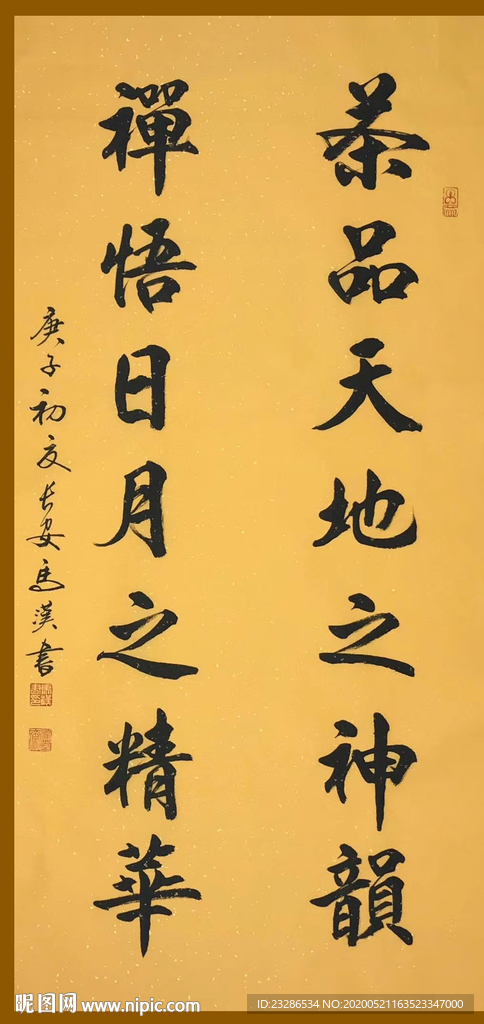 茶品天地之神韻
禪悟日月之精華
庚子初夏長安馬漢書
昵图网 www.nipic.com
ID:23286534 NO:20200521163523347000